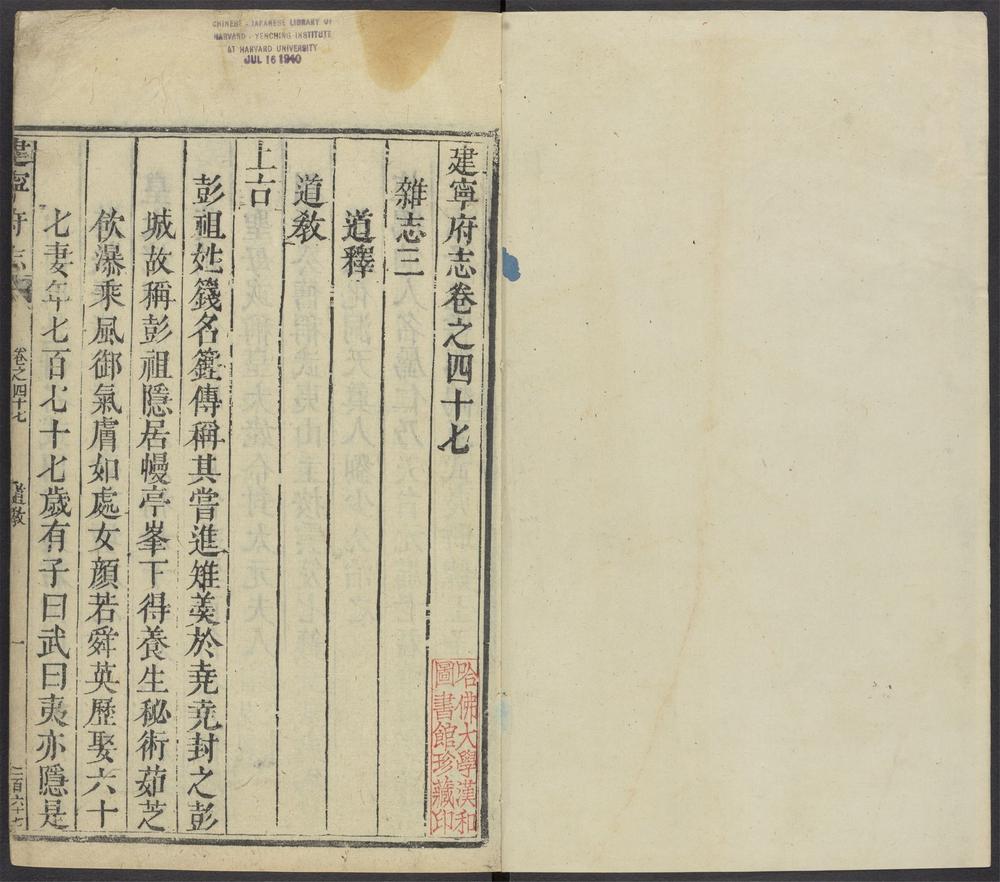 CHINESE - JAPANESE LIBRARY OF
HARVARD - YENCHING INSTITUTE
AT HARVARD UNIVERSITY
JUL 16 1940
建寧府志卷之四十七
雜志三
道釋
道教
上古
彭祖姓籛名鏗傳稱其嘗進雉羹於堯堯封之彭
城故稱彭祖隱居幔亭峯下得養生秘術茹芝
飲瀑乘風御氣膚如處女顏若舜英歷娶六十
七妻年七百七十七歲有子曰武曰夷亦隱是
建寧府志
卷之四十七
道教
一
二百六十七
哈佛大學漢和
圖書館珍藏印